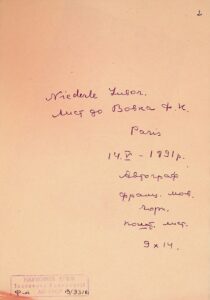 2
Niederle Lubor.
Лист до Вовка Ф. К.
Paris
14. V - 1891 р.
Автограф
франц. мов.
чорн.
пошт. лист.
9 х 14.
Ф-л